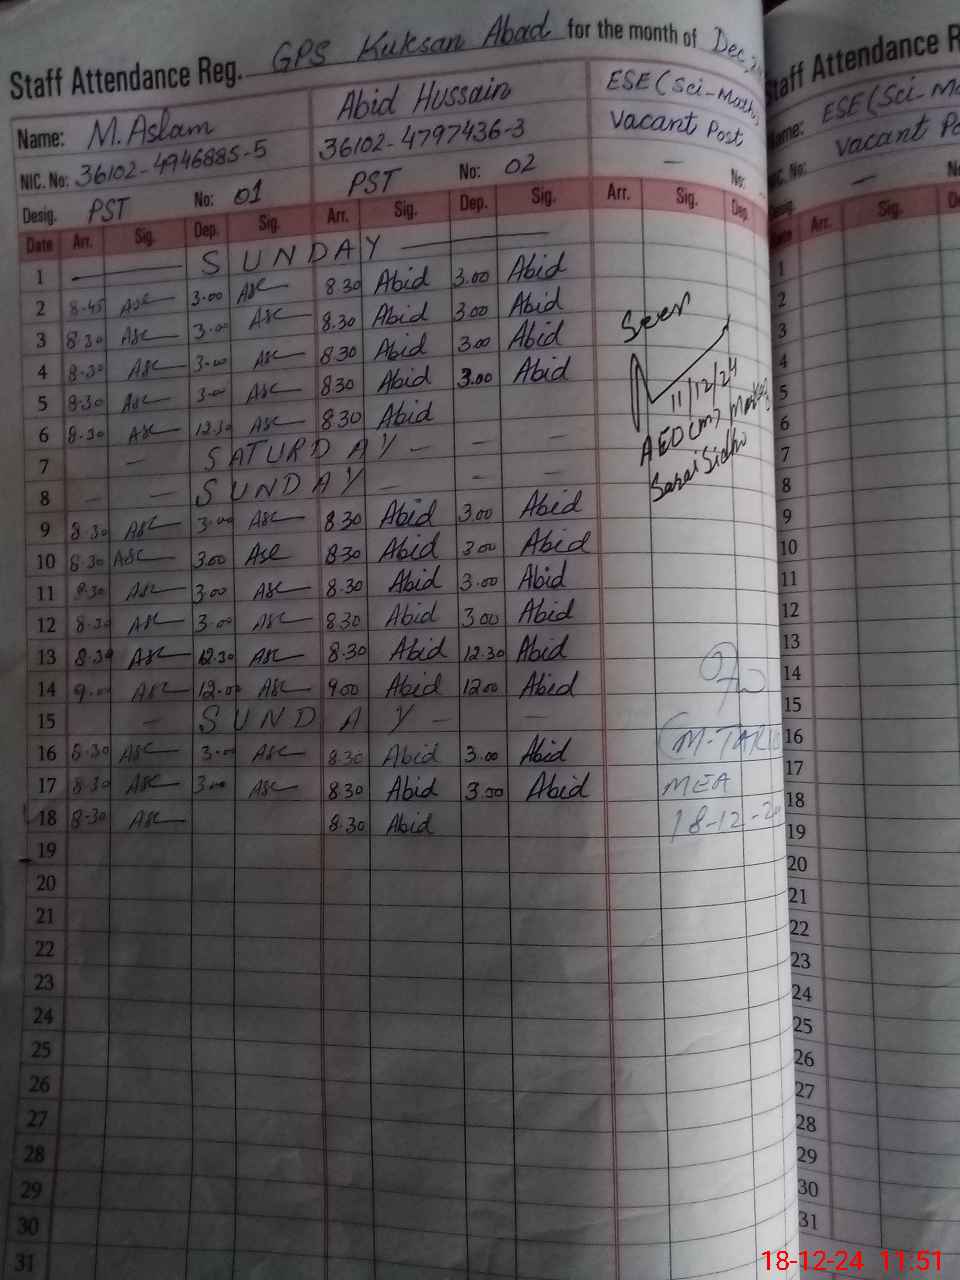 Staff Attendance Reg. GPS Kuksan Abad for the month of Dec,
Name: M.Aslam Abid Hussain ESE (Sci-Math)
Vacant Post
NIC. No: 36102-4946885-5 36102-4797436-3 —
Desig. PST No: 01 PST No: 02 No:
Date Arr. Sig. Dep. Sig. Arr. Sig. Dep. Sig. Arr. Sig. Dep.
1 SUNDAY
2 8-45 3-00 8.30 Abid 3.00 Abid
3 8-30 3-00 8.30 Abid 3.00 Abid
4 8-30 3-00 8.30 Abid 3.00 Abid
5 8-30 3-00 830 Abid 3.00 Abid
6 8-30 12.30 8.30 Abid
7 — SATURDAY — — —
8 — — SUNDAY — — —
9 8-30 3-00 8.30 Abid 3.00 Abid
10 8-30 3.00 8.30 Abid 3.00 Abid
11 8-30 3.00 8.30 Abid 3.00 Abid
12 8-30 3-00 8.30 Abid 3.00 Abid
13 8-30 12.30 8-30 Abid 12.30 Abid
14 9-00 12-00 900 Abid 1200 Abid
15 — SUNDAY — —
16 8-30 3-00 8.30 Abid 3.00 Abid
17 8-30 3-00 830 Abid 3.00 Abid
18 8-30 8.30 Abid
19
20
21
22
23
24
25
26
27
28
29
30
31
Seen
11/12/24
AEO (M)
Sarai Sidhu
M-TARIQ
MEA
18-12-
Staff Attendance R
Name: ESE (Sci-Ma
Vacant Po
NIC. No: —
Desig.
Date Arr. Sig.
1
2
3
4
5
6
7
8
9
10
11
12
13
14
15
16
17
18
19
20
21
22
23
24
25
26
27
28
29
30
31
18-12-24 11:51